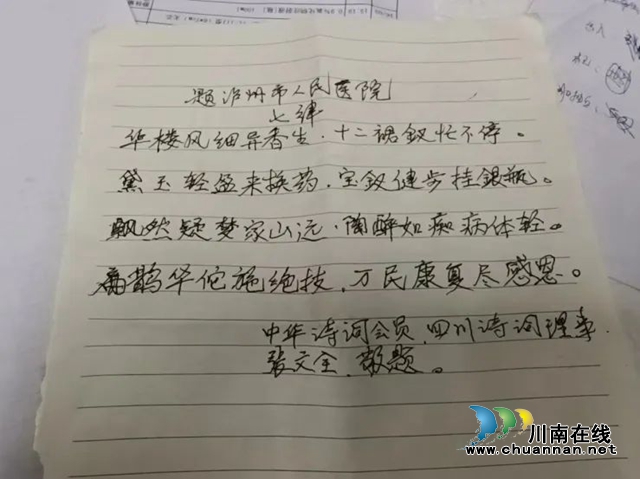 题泸州市人民医院
七律
华楼风细异香生，十二裙钗忙不停。
黛玉轻盈来换药，宝钗健步挂銀瓶。
飘然疑梦家山远，陶醉如痴病体轻。
扁鹊华佗施绝技，万民康复尽感恩。
中华诗词会员，四川诗词理事
张文全，敬题。
川南在线
www.chuannan.net